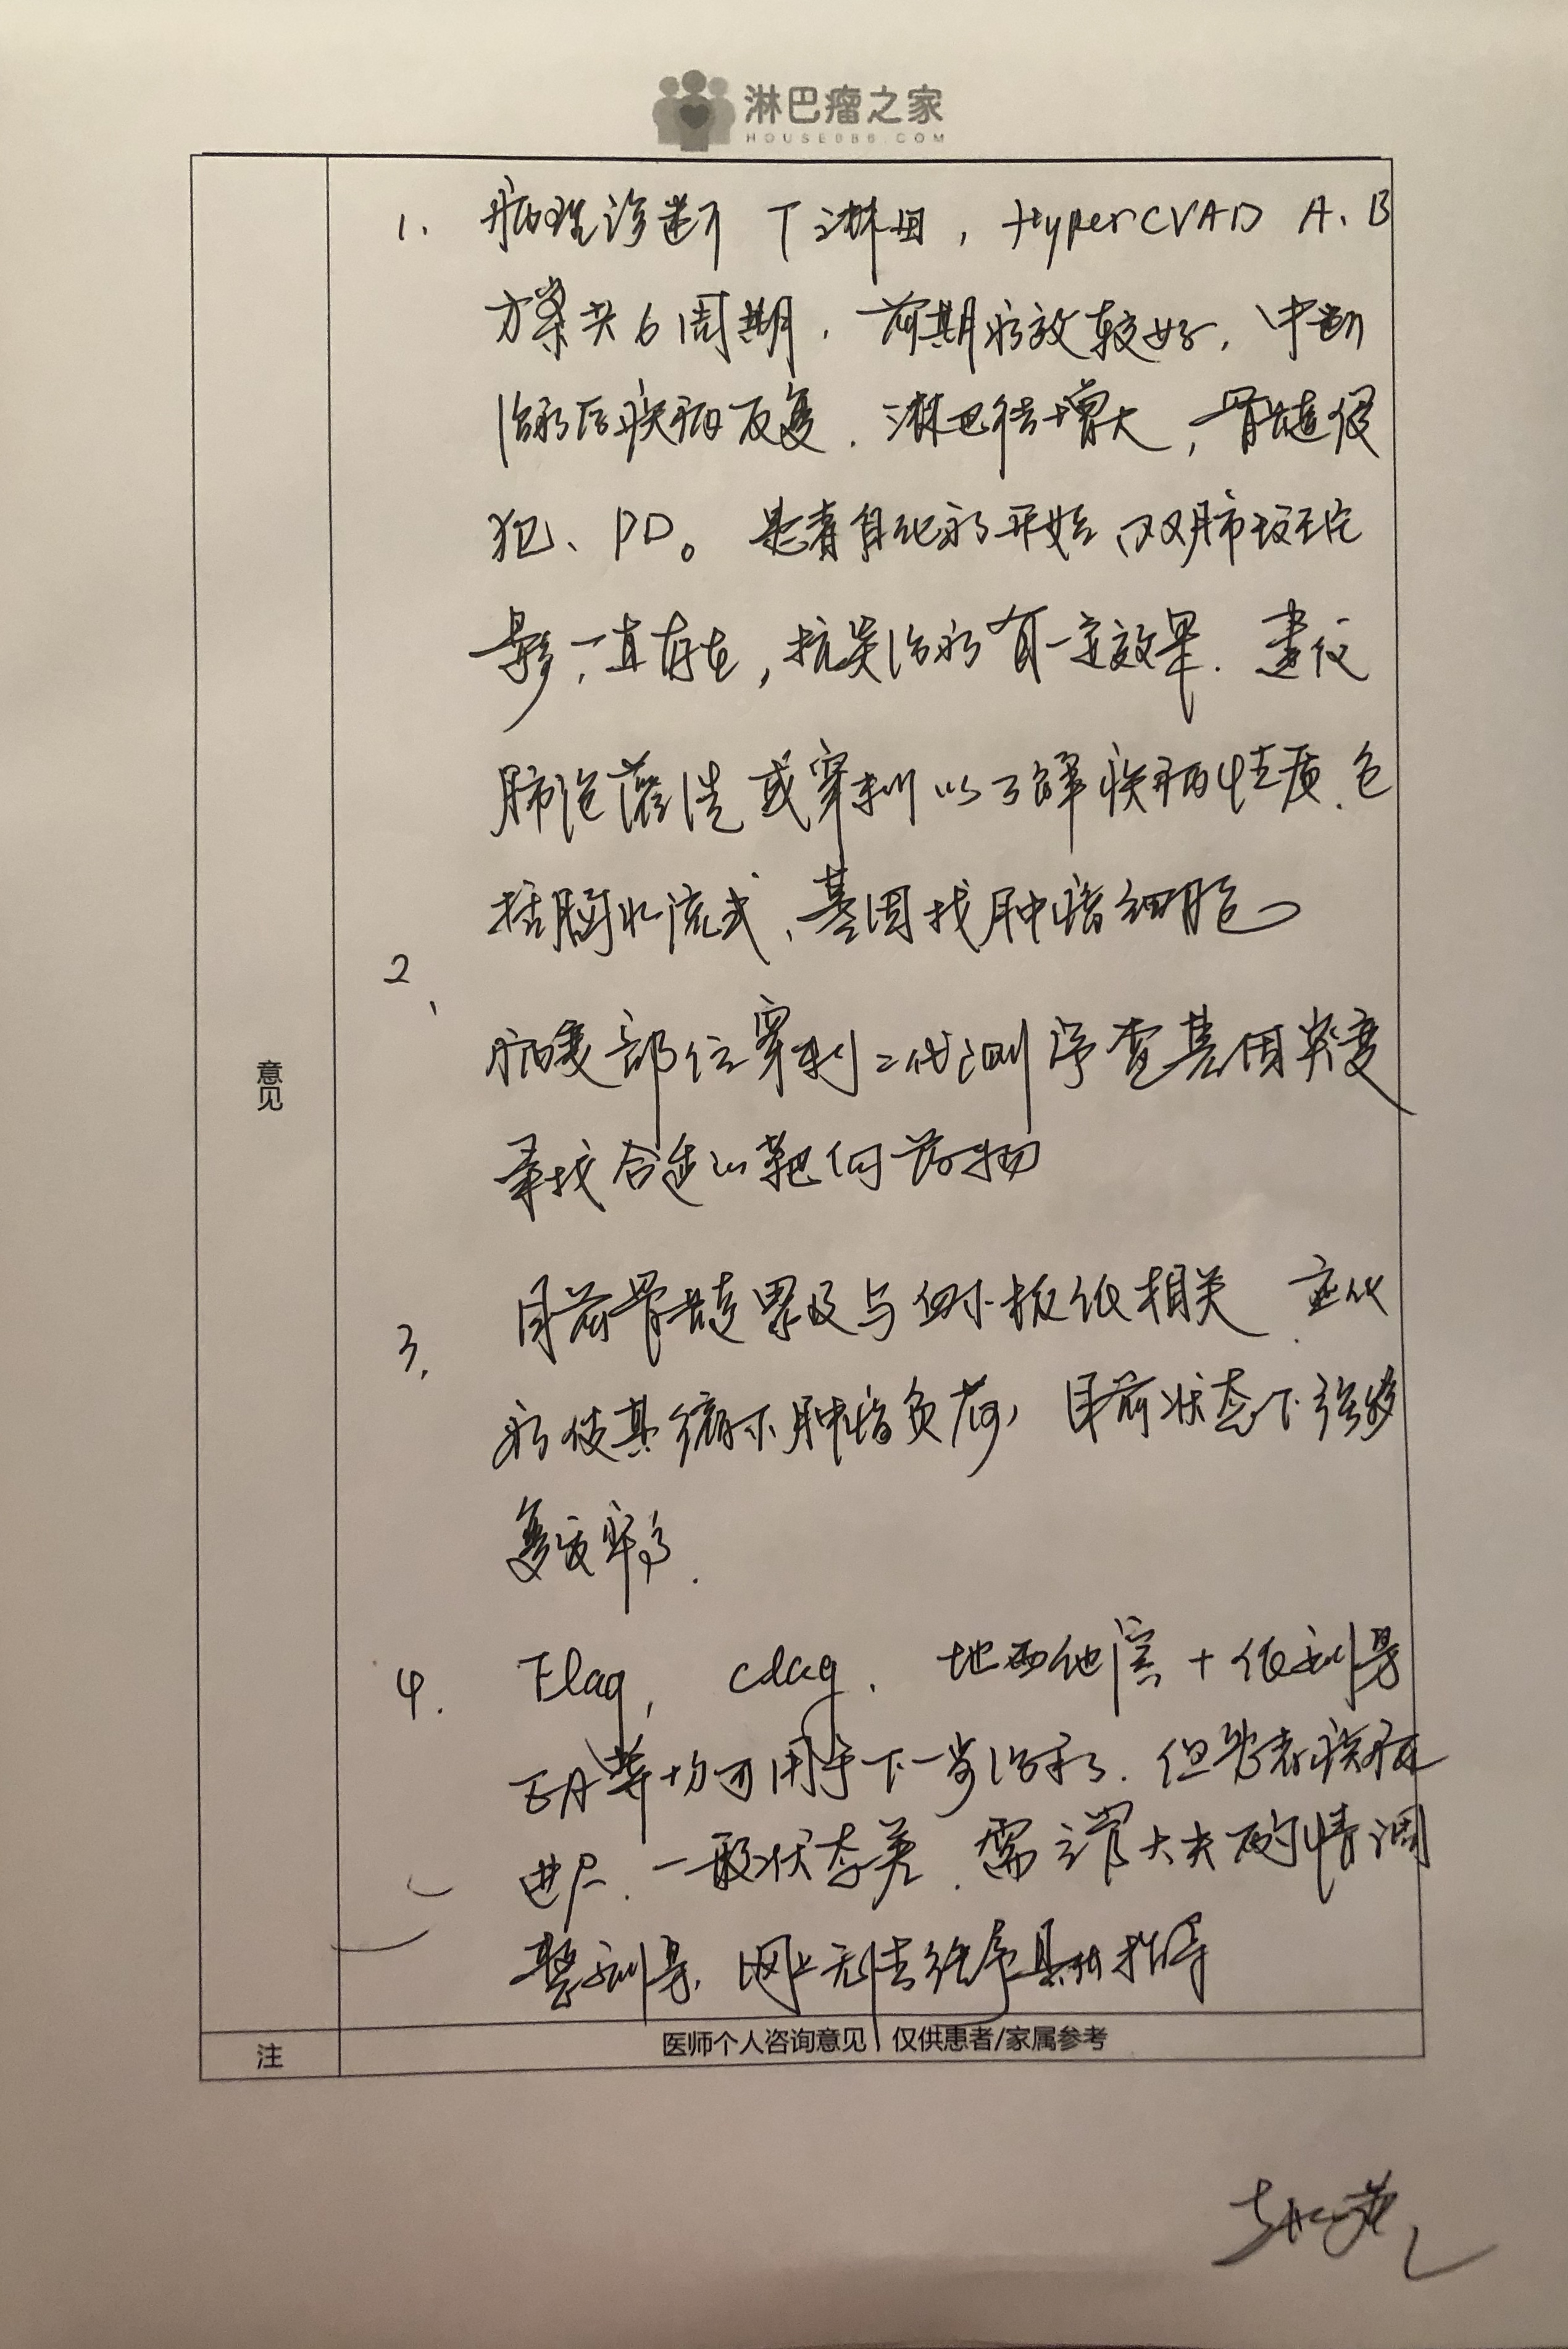 淋巴瘤之家
HOUSE086.COM
1. 病理诊断 T淋母, HyperCVAD A、B
方案共6周期, 前期疗效较好, 中断
治疗后疾病反复. 淋巴结增大, 骨髓侵
犯、PD。患者自化疗开始双肺斑片
影, 一直存在, 抗炎治疗有一定效果. 建议
肺泡灌洗或穿刺以了解疾病性质. 包
括胸水流式、基因找肿瘤细胞
2、
病变部位穿刺二代测序查基因突变
寻找合适的靶向药物
3. 目前骨髓累及与血小板低相关. 应化
疗使其缩小肿瘤负荷, 目前状态下
复发率高.
4. Flag, clag, 地西他滨+低剂量
EA等均可用于下一步治疗. 但患者疾病
进展. 一般状态差. 需主管大夫酌情调
整剂量, 网上无法给予具体指导
意见
注
医师个人咨询意见, 仅供患者/家属参考